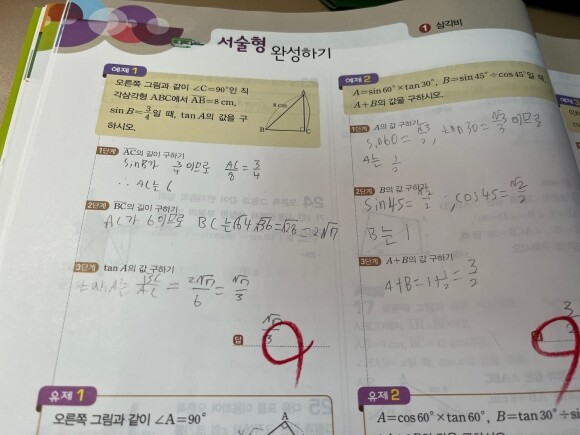 서술형 완성하기
1 삼각비
예제 1
오른쪽 그림과 같이 ∠C=90°인 직
각삼각형 ABC에서 AB=8 cm,
sin B=3/4일 때, tan A의 값을 구
하시오.
8 cm
A
B
C
1단계 AC의 길이 구하기
sinB가 3/4 이므로 AC/8 = 3/4
∴ AC는 6
2단계 BC의 길이 구하기
AC가 6이므로 BC는 √64-√36=√28=2√7
3단계 tan A의 값 구하기
BC/AC = 2√7/6 = √7/3
답 √7/3
유제 1
오른쪽 그림과 같이 ∠A=90°
A
예제 2
A=sin 60°×tan 30°, B=sin 45°÷cos 45°일 때,
A+B의 값을 구하시오.
1단계 A의 값 구하기
sin60=√3/2, tan30=√3/3이므로
A는 1/2
2단계 B의 값 구하기
sin45=√2/2, cos45=√2/2
B는 1
3단계 A+B의 값 구하기
A+B=1+1/2=3/2
3/2
유제 2
A=cos 60°×tan 60°, B=tan 30°÷si